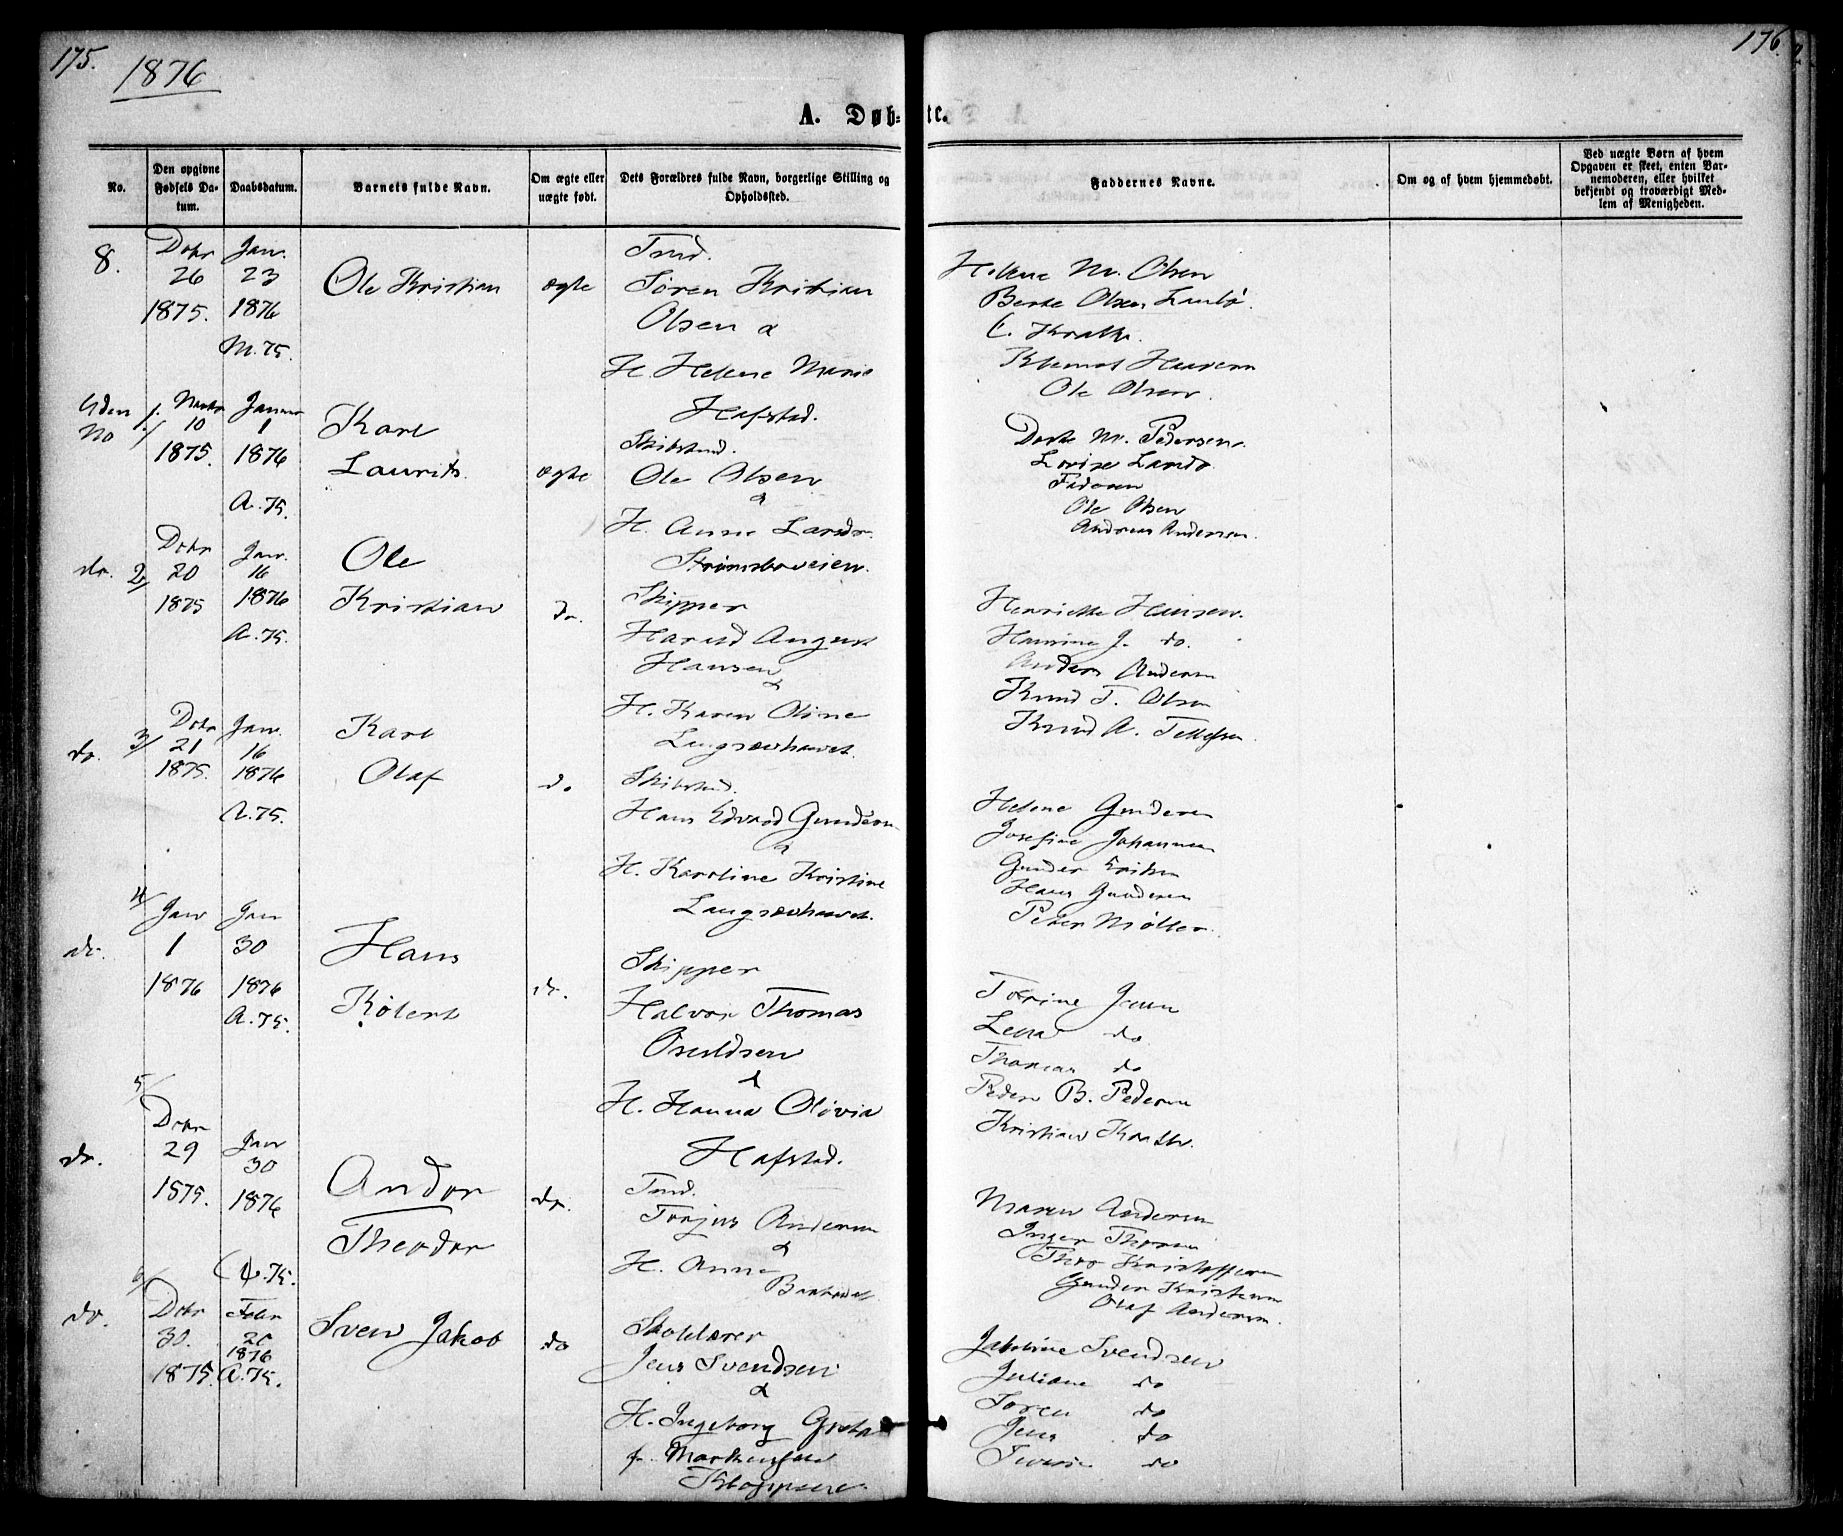 175.
1876
176.
A. Døb-
te.
No.
Den opgivne Fødsels Da-
tum.
Daabsdatum.
Barnets fulde Navn.
Om ægte eller uægte født.
Dets Forældres fulde Navn, borgerlige Stilling og Opholdssted.
Faddernes Navne.
Om og af hvem hjemmedøbt.
Ved uægte Børn af hvem
Opgaven er skeet, enten Bar-
nemoderen, eller hvilket
bekjendt og troværdigt Med-
lem af Menigheden.
8.
Dcbr
26
1875.
Jan.
23
1876
M. 75.
Ole Kristian
ægte
Tmd.
Søren Kristian
Olsen &
H. Helene Marie
Hafstad.
Helene M. Olsen
Olsen
C.
Ole Olsen.
Uden
No
1/
10
1875.
1
1876
A. 75.
Karl
Laurits
ægte
Skibstmd.
Ole Olsen
&
H. Anne Larsdr.
Strømsboveien.
Dorte M. Pedersen.
Lovise Larsdr.
Faderen
Ole Olsen
Andreas Andersen.
do. 2/
Dcbr
20
1875
Jan.
16
1876
A. 75.
Ole
Kristian
do.
Skipper
Harald August
Hansen
&
H. Karen Oline
Langsævhavet.
Henriette Hansen.
J. do.
Anders Andersen
Knud T. Olsen
Knud A. Tellefsen
do. 3/
Dcbr
21
1875.
Jan.
16
1876
A. 75.
Karl
Olaf
do
Skibstmd.
Hans Edvard Gundersen
&
H. Karoline Kristine
Langsævhavet.
Helene Gundersen
Josefine Johannesen
Gunder Eriksen
Hans Gundersen
Peter Møller.
do.
4/
Jan
1
1876
Jan
30
1876
A. 75.
Hans
Kølert
do.
Skipper
Halvor Thomas
Osuldsen
&
H. Hanna Olivia
Hafstad.
Torine Jensen
Lena do
Thomas do
Peder B. Pedersen
Kristian
do.
5/
Dcbr
29
1875.
Jan
30
1876
A. 75.
Andor
Theodor
do.
Tmd.
Torjus Andersen
&
H. Anne
Maren Andersen
Inger
Kristoffersen
Gunder Kristensen
Olaf Andersen.
do.
6/
Dcbr
30.
1875.
Febr
20
1876
A. 75.
Sven Jakob
do
Skolelærer
Jens Svendsen
&
H. Ingeborg
f.
Jakobine Svendsen
Juliane do
Søren do
Jens do
do